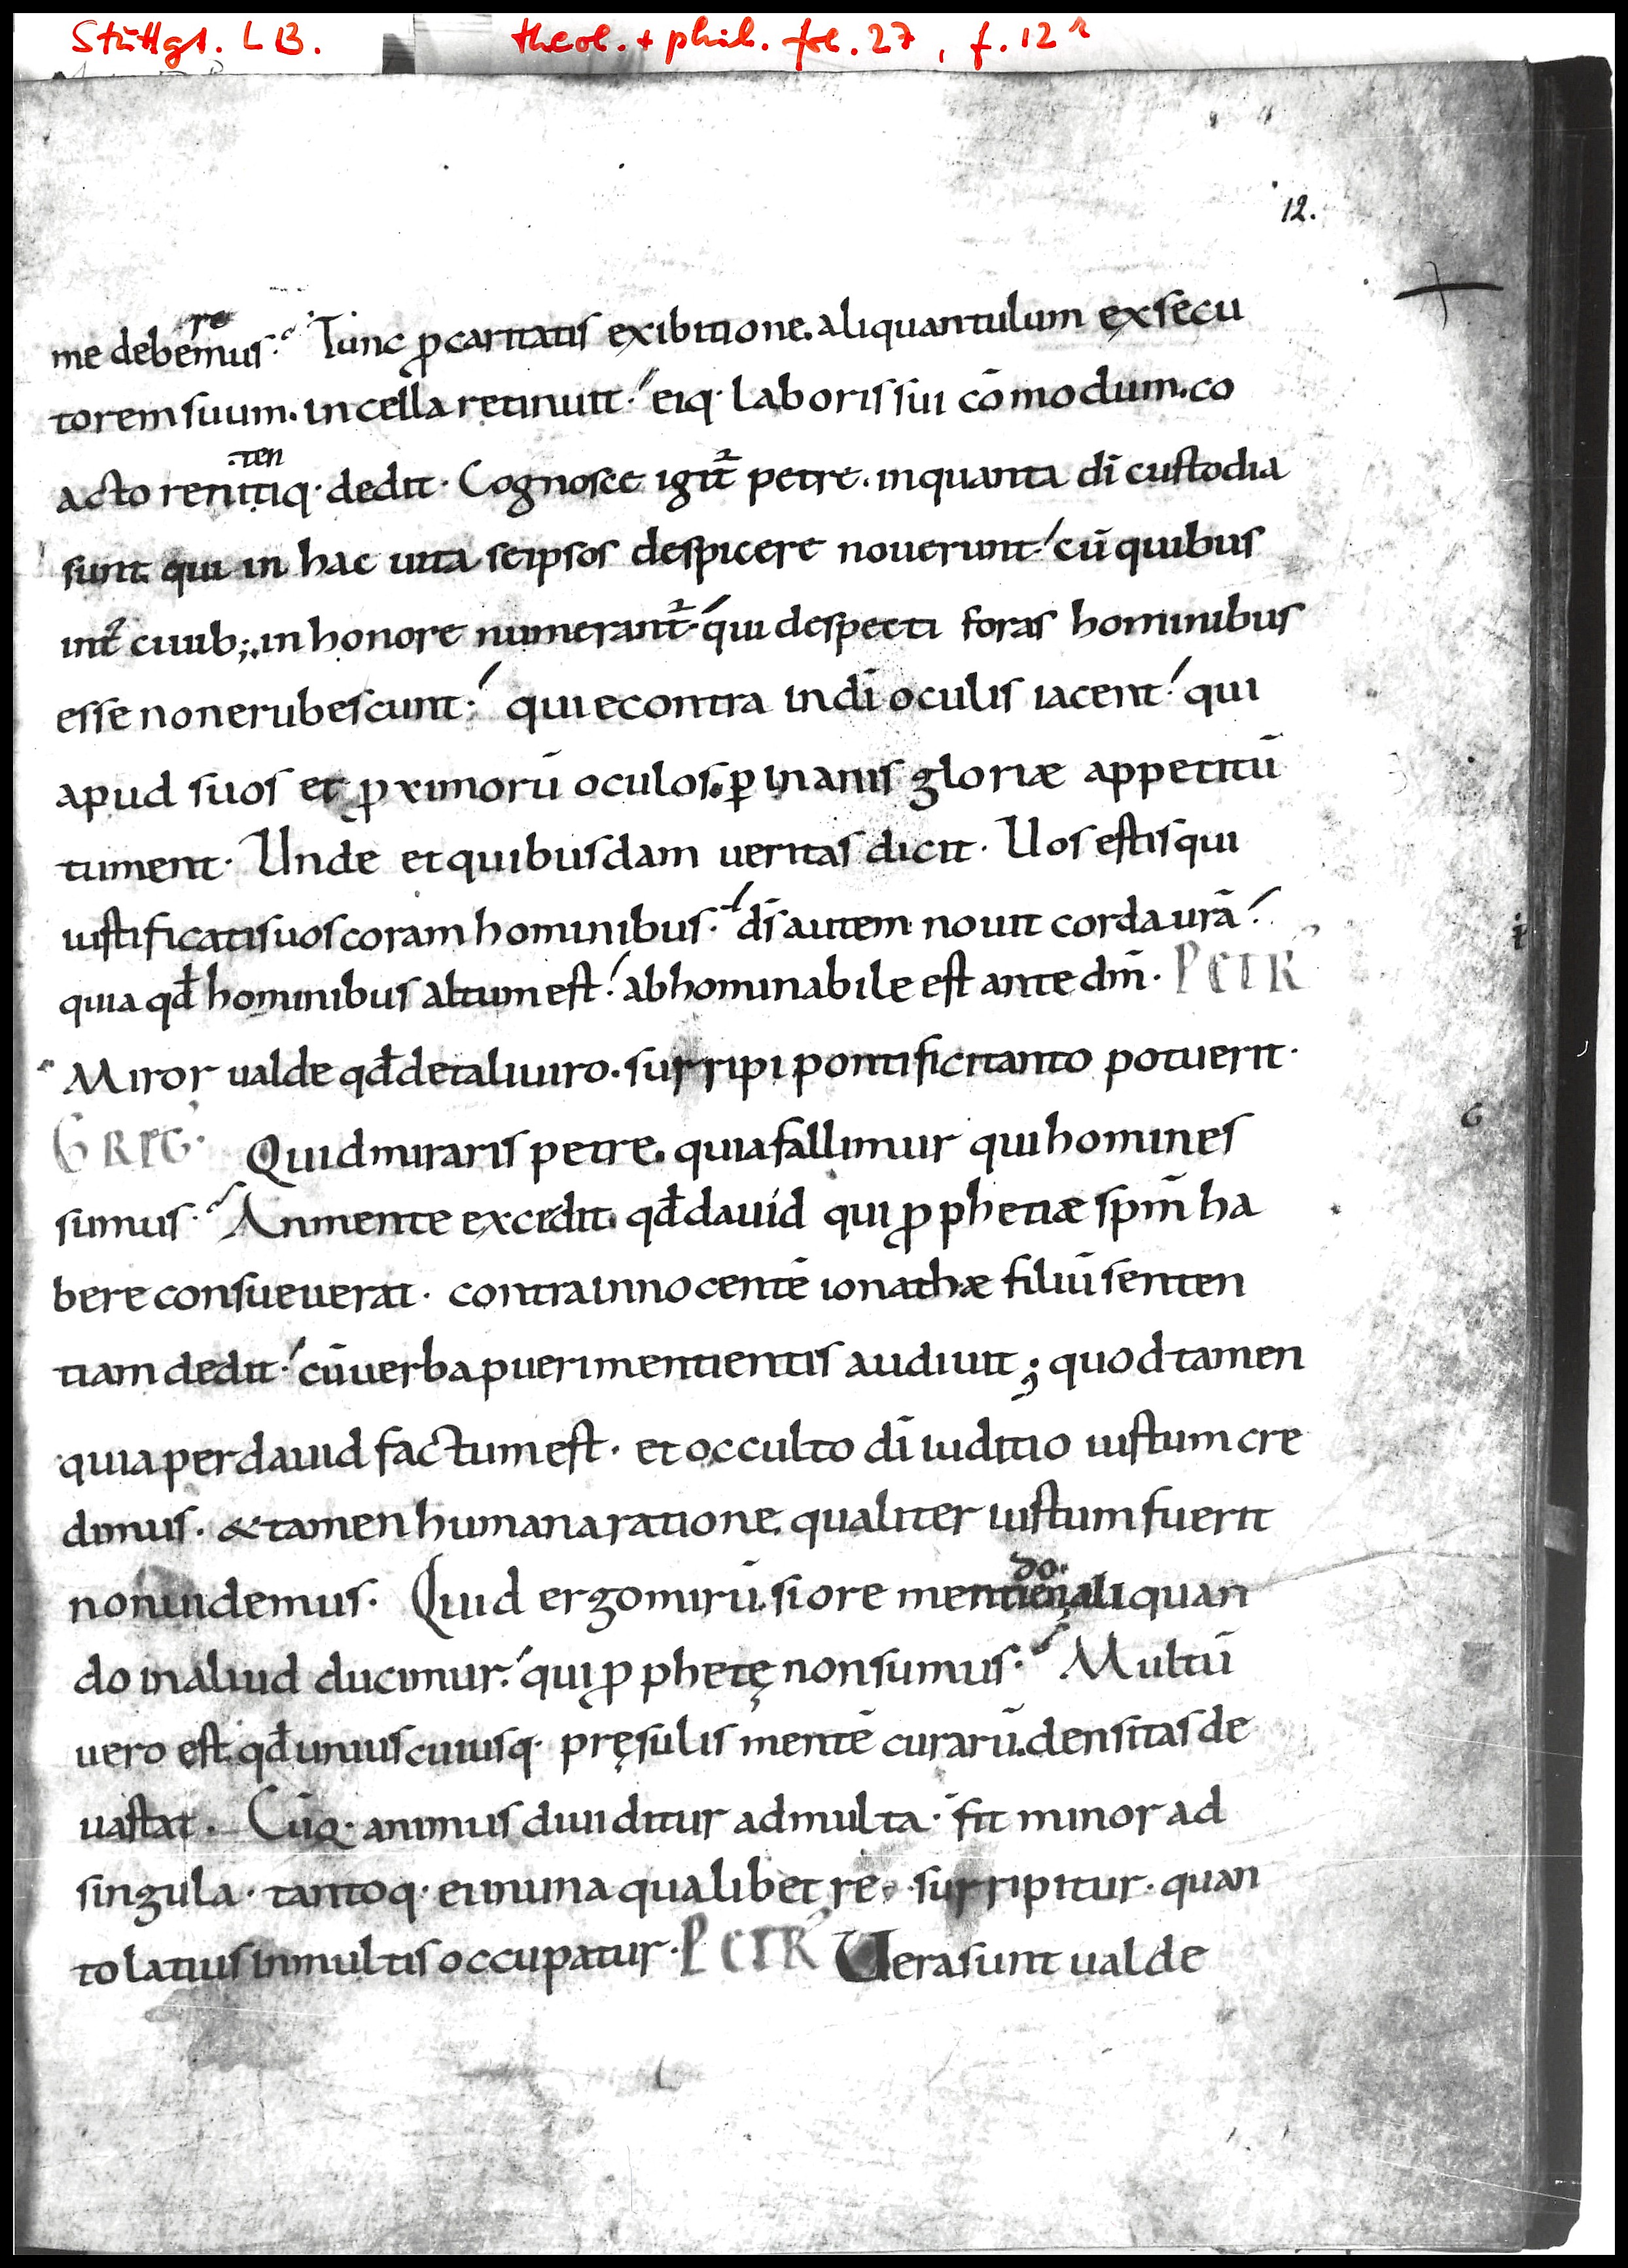 Stuttgt. LB. theol. + phil. fol. 27, f. 12r
12.
re
me debemus. Tunc ꝓ caritatis exibitione. aliquantulum exsecu
torem suum. in cella retinuit. eiq· laboris sui cōmodum. co
ten
acto renitiq· dedit. Cognosce igit petre. in quanta dī custodia
sunt. qui in hac uita seipsos despicere nouerunt. cū quibus
int ciuib; in honore numerant. qui despecti foras hominibus
esse non erubescunt. qui econtra in dī oculis iacent. qui
apud suos et ꝓximorū oculos. ꝑ inanis gloriæ appetitū
tument. Unde et quibusdam ueritas dicit. Uos estis qui
iustificatis uos coram hominibus. ds̄ autem nouit corda urā.
quia qđ hominibus altum est. abhominabile est ante dm̄. PETR
Miror ualde qđ de tali uiro. surripi pontifici tanto potuerit.
GREG· Quid miraris petre. quia fallimur qui homines
sumus. An mente excidit. qđ dauid qui ꝓphetiæ spm̄ ha
bere consueuerat. contra innocentē ionathæ filiū senten
tiam dedit. cū uerba pueri mentientis audiuit; quod tamen
quia per dauid factum est. et occulto dī iuditio iustum cre
dimus. & tamen humana ratione. qualiter iustum fuerit
non uidemus. Quid ergo mirū. si ore mentien aliquan
do in aliud ducimur. qui ꝓphetę non sumus. Multū
uero est. qđ uniuscuiusq· pręsulis mentē curarū. densitas de
uastat. Cūq· animus diuiditur ad multa. fit minor ad
singula. tantoq· ei in una qualibet re. surripitur. quan
to latius in multis occupatur. PETR Uera sunt ualde